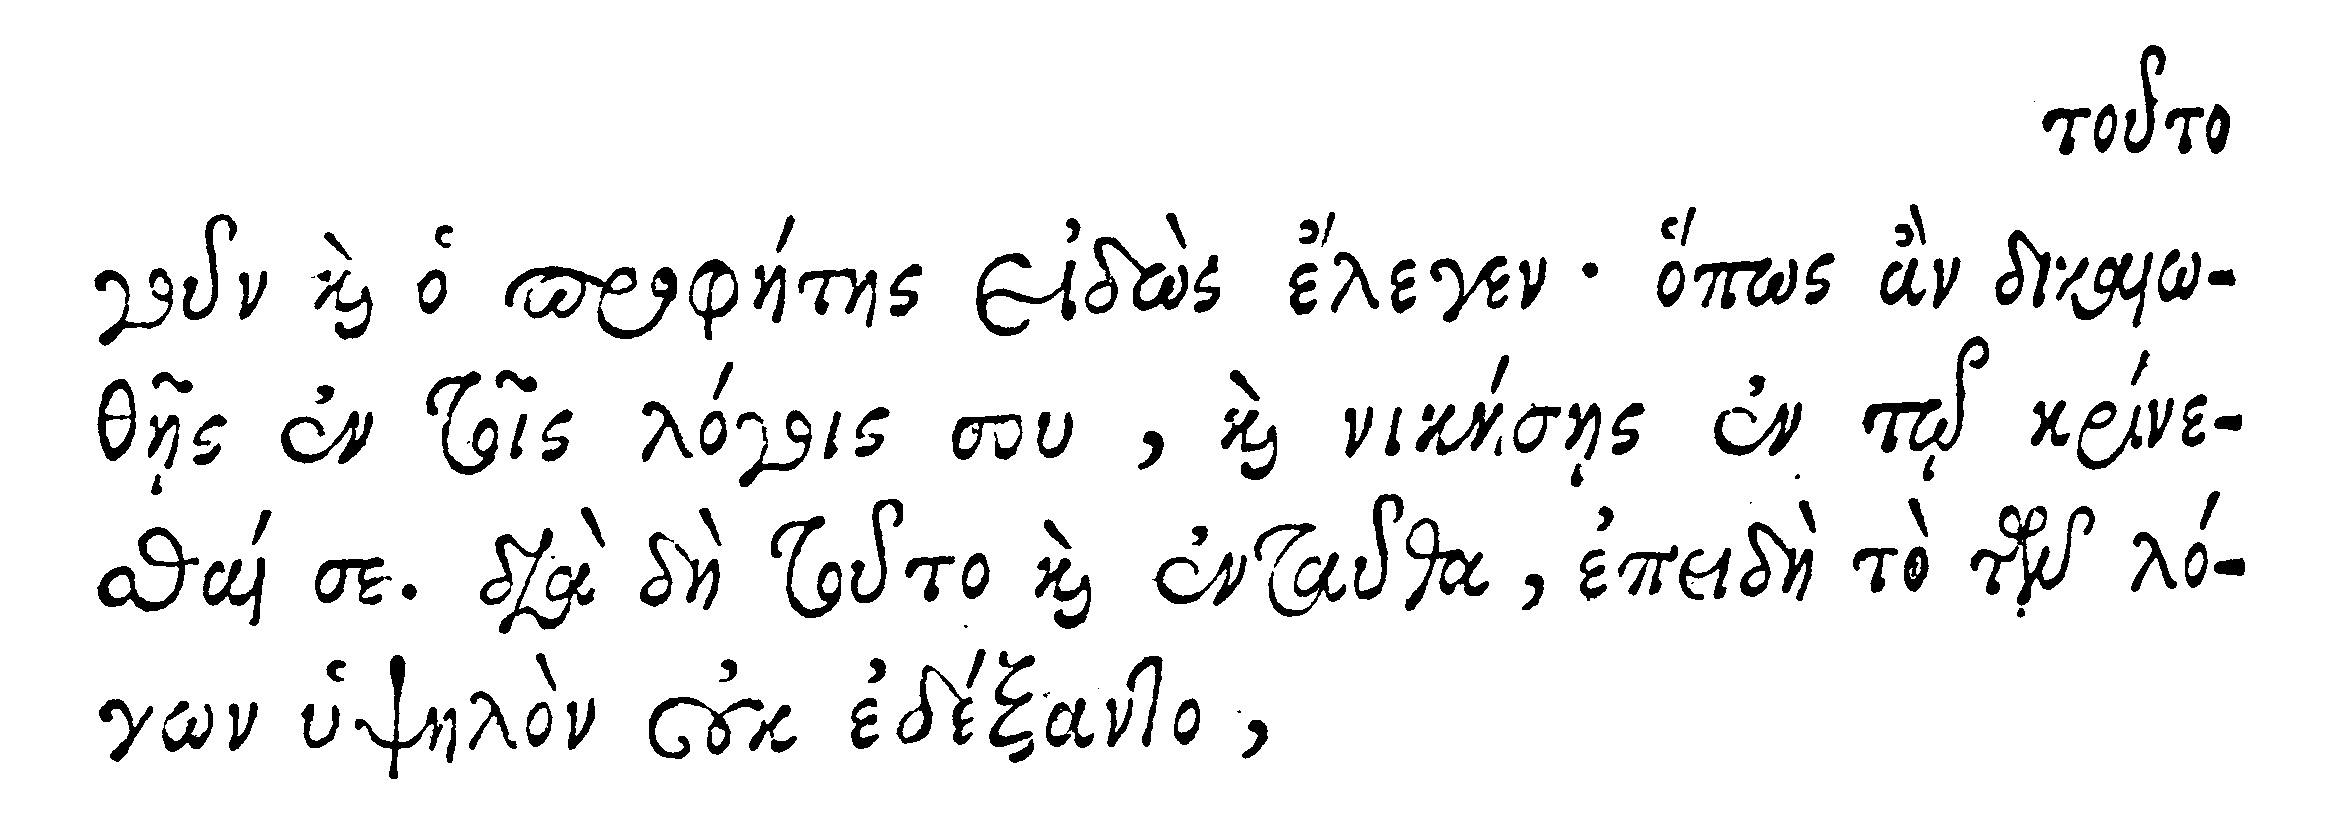 τοῦτο
γοῦν καὶ ὁ προφήτης εἰδὼς ἔλεγεν· ὅπως ἂν δικαιω-
θῇς ἐν τοῖς λόγοις σου, καὶ νικήσῃς ἐν τῷ κρίνε-
σθαί σε. διὰ δὴ τοῦτο καὶ ἐνταῦθα, ἐπειδὴ τὸ τῶν λό-
γων ὑψηλὸν οὐκ ἐδέξαντο,